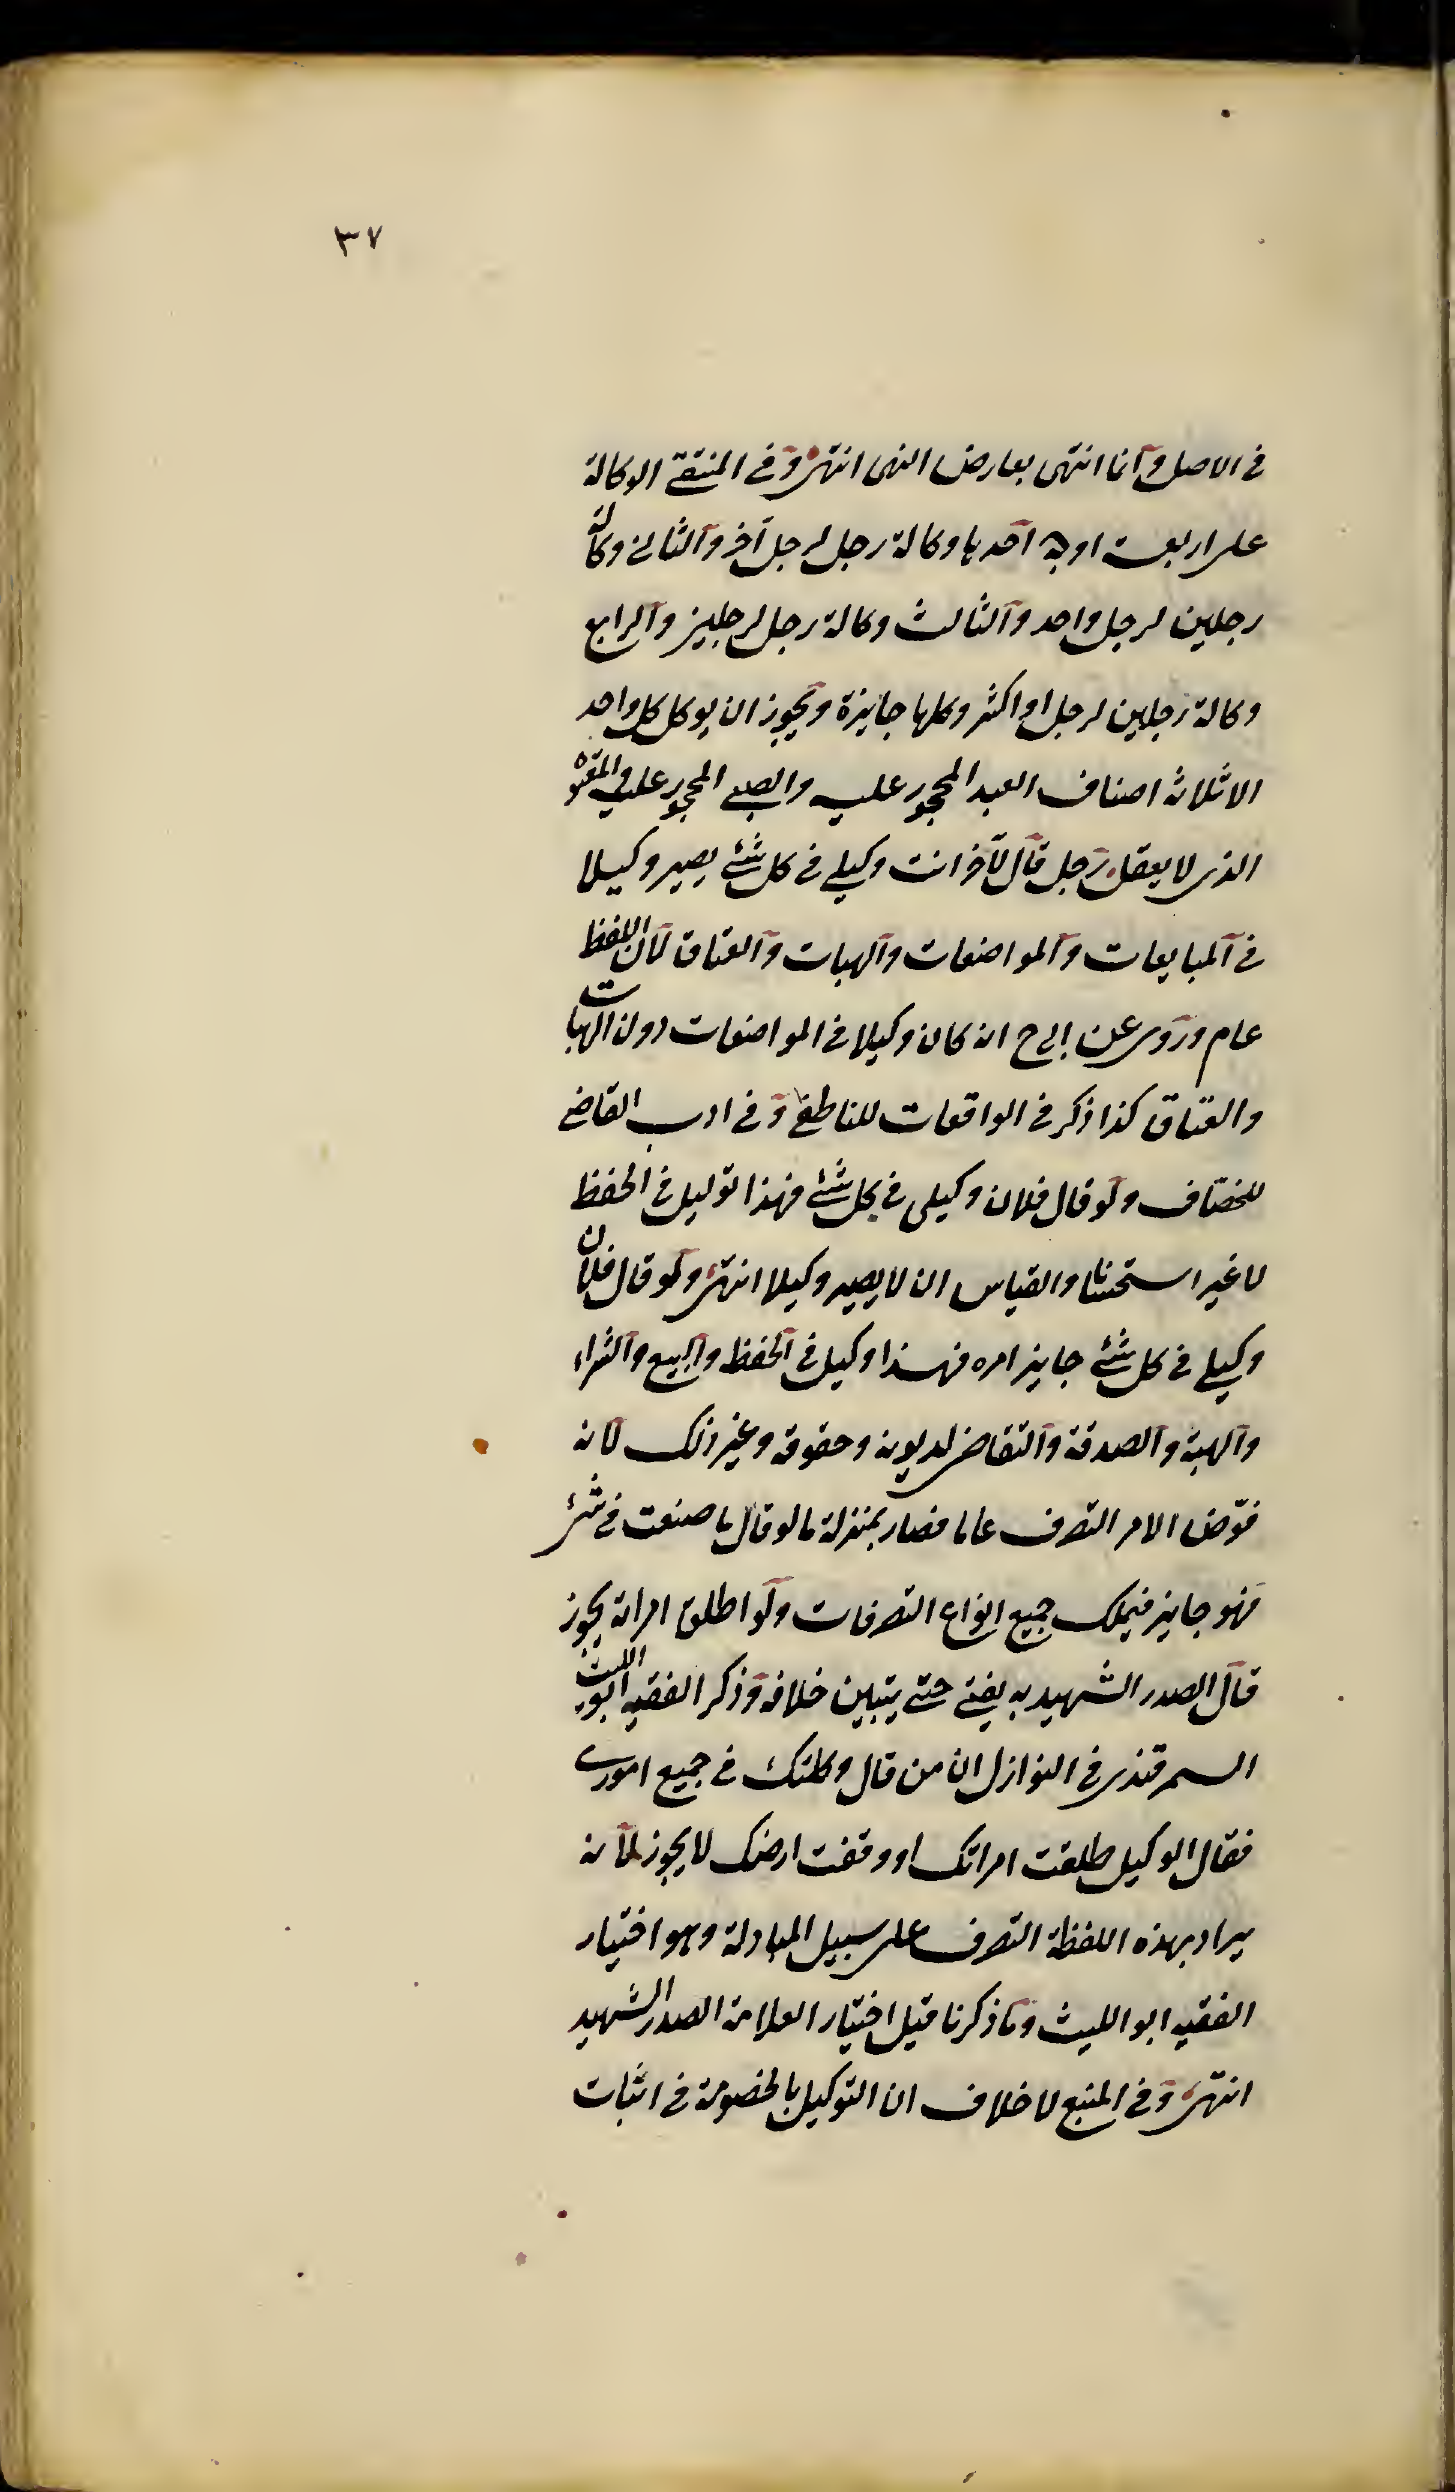 ٣٧
في الاصل وانما انتهى بعارض النهى انتهى وفي المنتقى الوكالة
على اربعة اوجه احدها وكالة رجل لرجل آخر والثاني وكالة
رجلين لرجل واحد والثالث وكالة رجل لرجلين والرابع
وكالة رجلين لرجل او اكثر وكلها جايزة ويجوز ان يوكل كل واحد
الا ثلاثة اصناف العبد المحجور عليه والصبي المحجور عليه والمعتوه
الذى لا يعقل رجل قال لآخر انت وكيلي في كل شئ يصير وكيلا
في المبايعات والمواضعات والهبات والعتاق لان اللفظ
عام وروى عن ابي ح انه كان وكيلا في المواضعات دون الهبات
والعتاق كذا ذكر في الواقعات للناطفي وفي ادب القاضي
للخصاف ولو قال فلان وكيلى في كل شئ فهذا توكيل في الحفظ
لا غير استحسانا والقياس ان لا يصير وكيلا انتهى ولو قال فلان
وكيلي في كل شئ جايز امره فهذا وكيل في الحفظ والبيع والشراء
والهبة والصدقة والتقاضى لديونه وحقوقه وغير ذلك لانه
فوّض الامر التصرف عاما فصار بمنزلة ما لو قال ما صنعت في شئ
فهو جايز فيملك جميع انواع التصرفات ولو اطلق امراته يجوز
قال الصدر الشهيد به يفتى حتى يتبين خلافه وذكر الفقيه ابو الليث
السمرقندى في النوازل ان من قال وكلتك في جميع امورى
فقال الوكيل طلقت امراتك او وقفت ارضك لا يجوز لانه
يراد بهذه اللفظة التصرف على سبيل المبادلة وهو اختيار
الفقيه ابو الليث وما ذكرنا قبل اختيار العلامة الصدر الشهيد
انتهى وفي المنبع لا خلاف ان التوكيل بالخصومة في اثبات